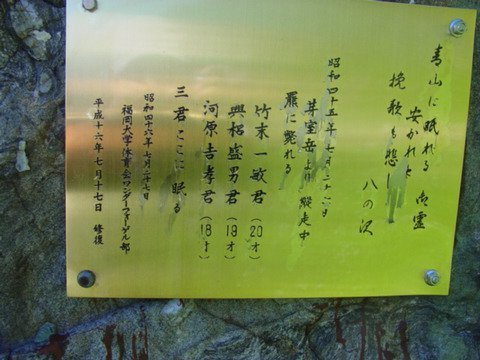 青山に眠れる 御霊
安かれと
挽歌も悲し 八の沢
昭和四十五年七月二十六日
芽室岳より縦走中
羆に襲れる
竹末一敏君(20才)
興梠盛男君(19才)
河原吉孝君(18才)
三君ここに眠る
昭和四十六年七月二十七日
福岡大学体育会ワンダーフォーゲル部
平成十六年七月十七日 修復